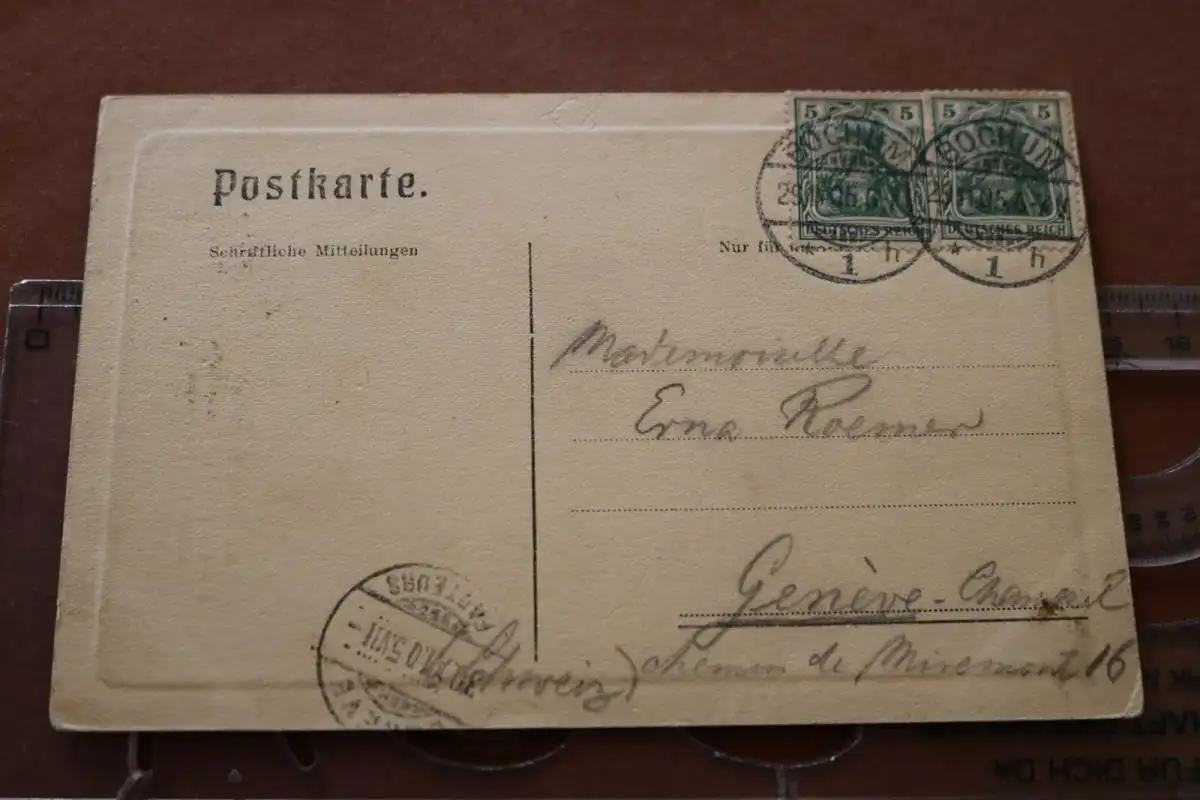 Postkarte.
Schriftliche Mitteilungen
Nur für
5 5 5 5
DEUTSCHES REICH DEUTSCHES REICH
BOCHUM
1 h
BOCHUM
1 h
Mademoiselle
Erna Roemer
Genève -
(Schweiz) chemin de Miremont 16
FACTEURS
0
FÜR DICH DA